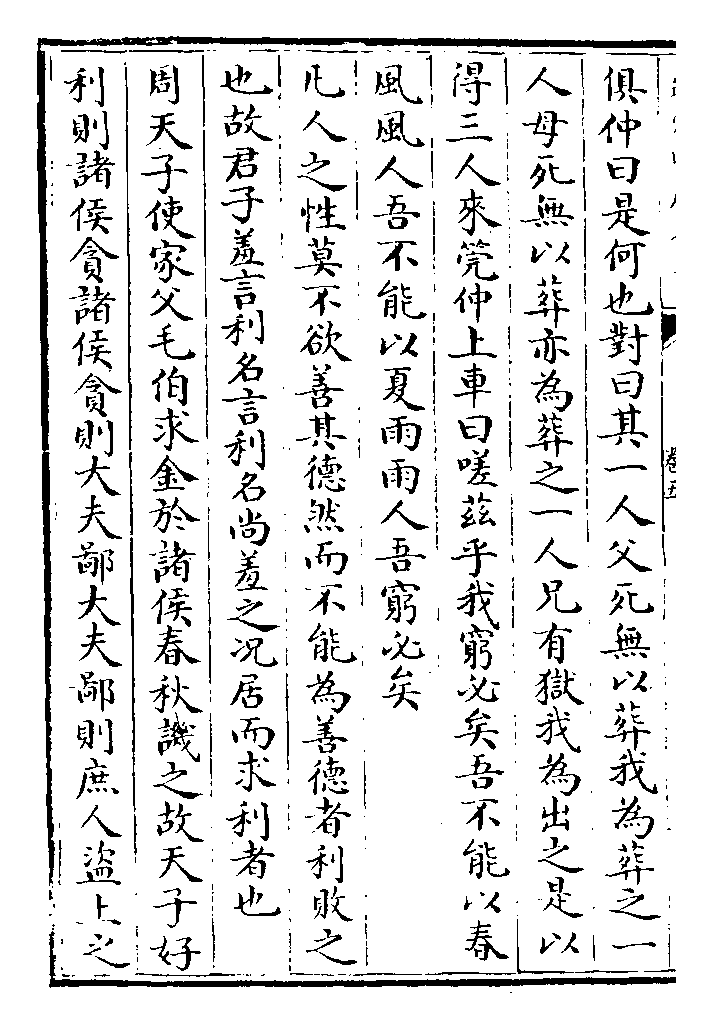 俱仲曰是何也對曰其一人父死無以葬我為葬之一
人母死無以葬亦為葬之一人兄有獄我為出之是以
得三人來筦仲上車曰嗟茲乎我窮必矣吾不能以春
風風人吾不能以夏雨雨人吾窮必矣
凡人之性莫不欲善其德然而不能為善德者利敗之
也故君子羞言利名言利名尚羞之况居而求利者也
周天子使家父毛伯求金於諸侯春秋譏之故天子好
利則諸侯貪諸侯貪則大夫鄙大夫鄙則庶人盜上之
卷五